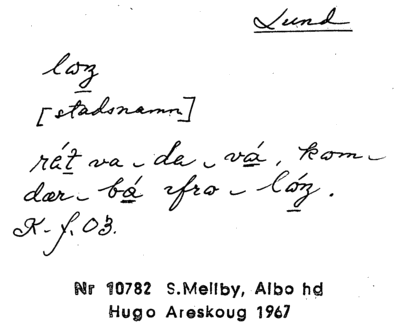 Lund
loz
[stadsnamn]
rét va da vá, kom
dær bá ifra lóz.
K-f. 03.
Nr 10782 S.Mellby, Albo hd
Hugo Areskoug 1967